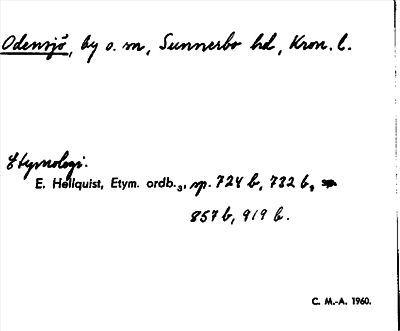 Odensjö, by o. sn, Sunnerbo hd, Kron. l.
Etymologi.
E. Hellquist, Etym. ordb.₃, sp. 724 b, 732 b,
857 b, 919 b.
C. M.-A. 1960.